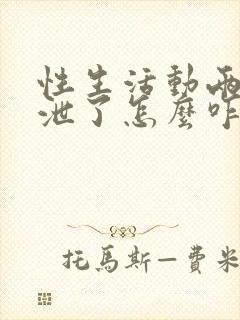 性生活動兩
泄了怎麼咋
托馬斯—費米